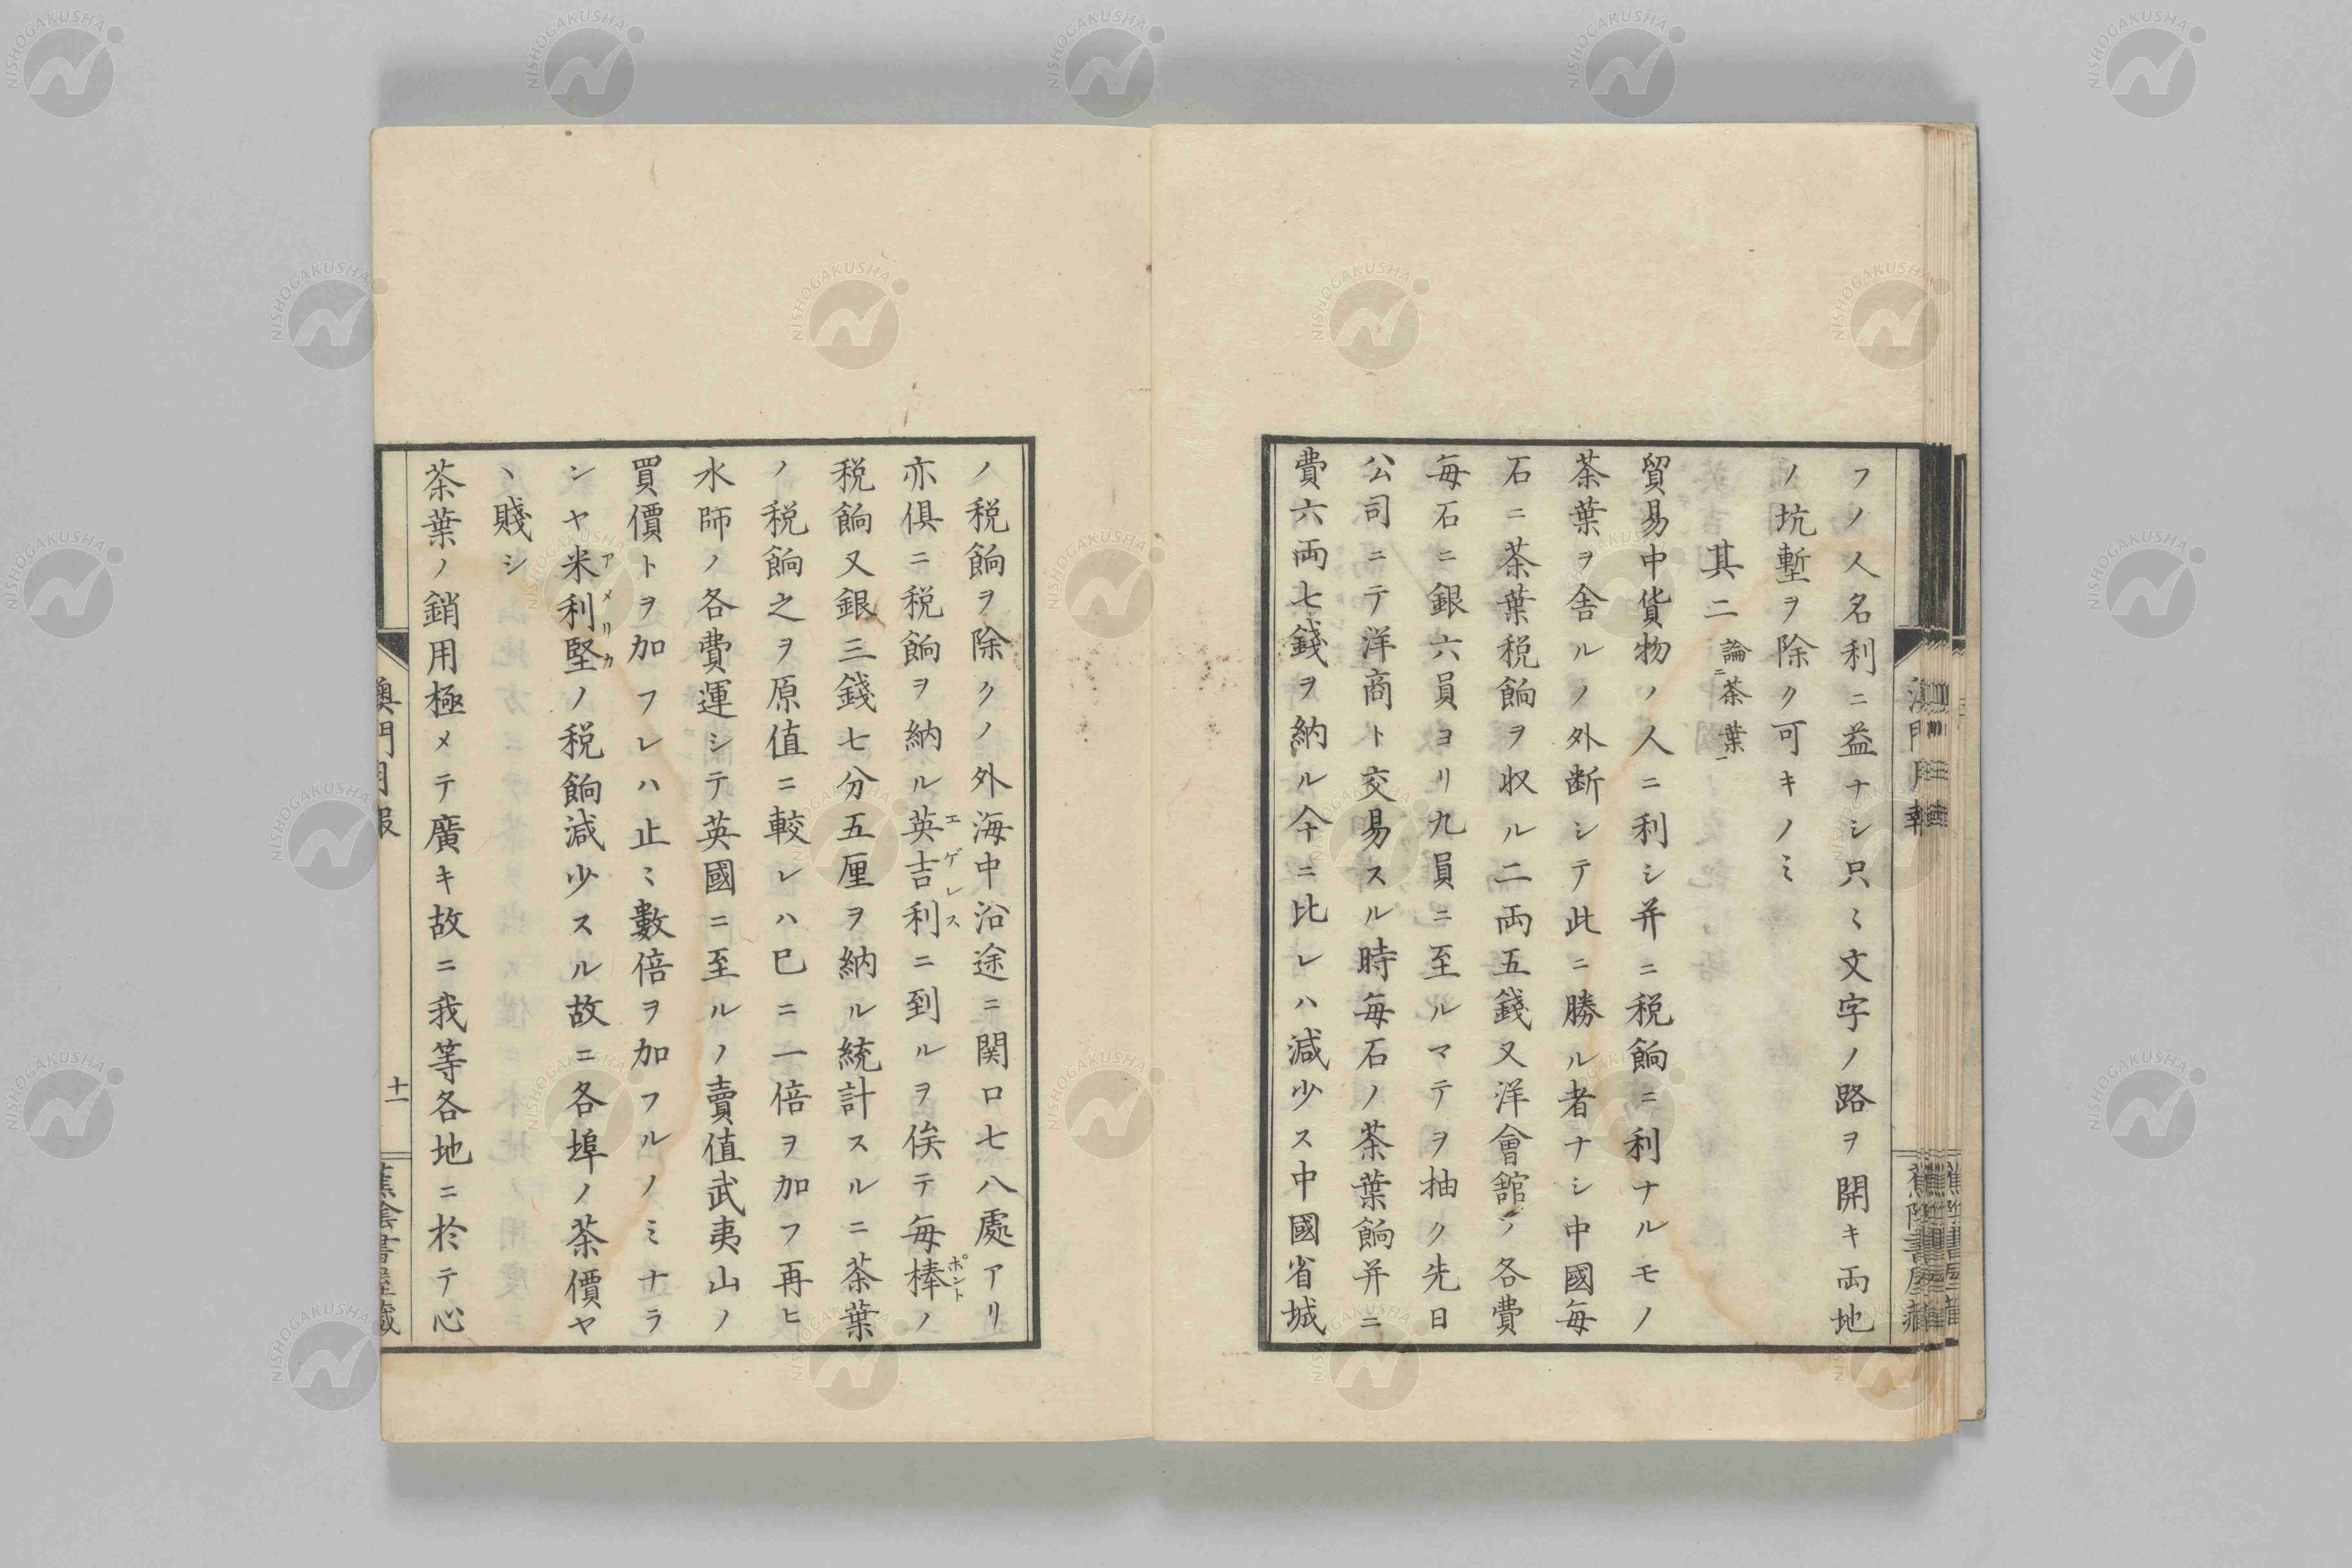 フノ人名利ニ益ナシ只ミ文字ノ路ヲ開キ両地
ノ坑塹ヲ除ク可キノミ
其二 論ニ茶葉一
貿易中貨物ノ人ニ利シ并ニ税餉ニ利ナルモノ
茶葉ヲ舎ルノ外断シテ此ニ勝ル者ナシ中國毎
石ニ茶葉税餉ヲ収ル二両五錢又洋會舘ノ各費
毎石ニ銀六員ヨリ九員ニ至ルマテヲ抽ク先日
公司ニテ洋商ト交易スル時毎石ノ茶葉餉并ニ
費六両七錢ヲ納ル今ニ比レハ減少ス中國省城
ノ税餉ヲ除クノ外海中沿途ニ関口七八處アリ
亦俱ニ税餉ヲ納ル英吉利ニ到ルヲ俟テ毎棒ノ
エゲレス
ポント
税餉又銀三錢七分五厘ヲ納ル統計スルニ茶葉
ノ税餉之ヲ原值ニ較レハ巳ニ一倍ヲ加フ再ヒ
水師ノ各費運シテ英國ニ至ルノ賣值武夷山ノ
買價トヲ加フレハ止ミ數倍ヲ加フルノミナラ
シヤ米利堅ノ税餉減少スル故ニ各埠ノ茶價ヤ
アメリカ
ヽ賤シ
茶葉ノ銷用極メテ廣キ故ニ我等各地ニ於テ心
澳門月報
十一
蕉陰書屋藏
NISHOGAKUSHA